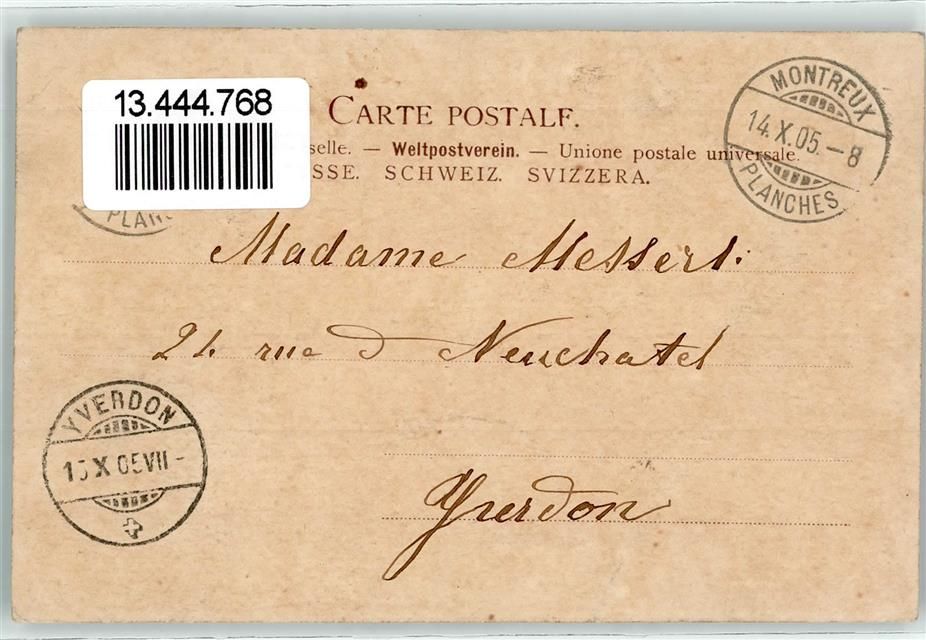 13.444.768
CARTE POSTALE.
selle. — Weltpostverein. — Unione postale universale.
SSE. SCHWEIZ. SVIZZERA.
MONTREUX
14.X.05.–8
PLANCHES
PLAN
Madame Messerli
21. rue d Neuchatel
YVERDON
15 X 05 VII –
Yverdon